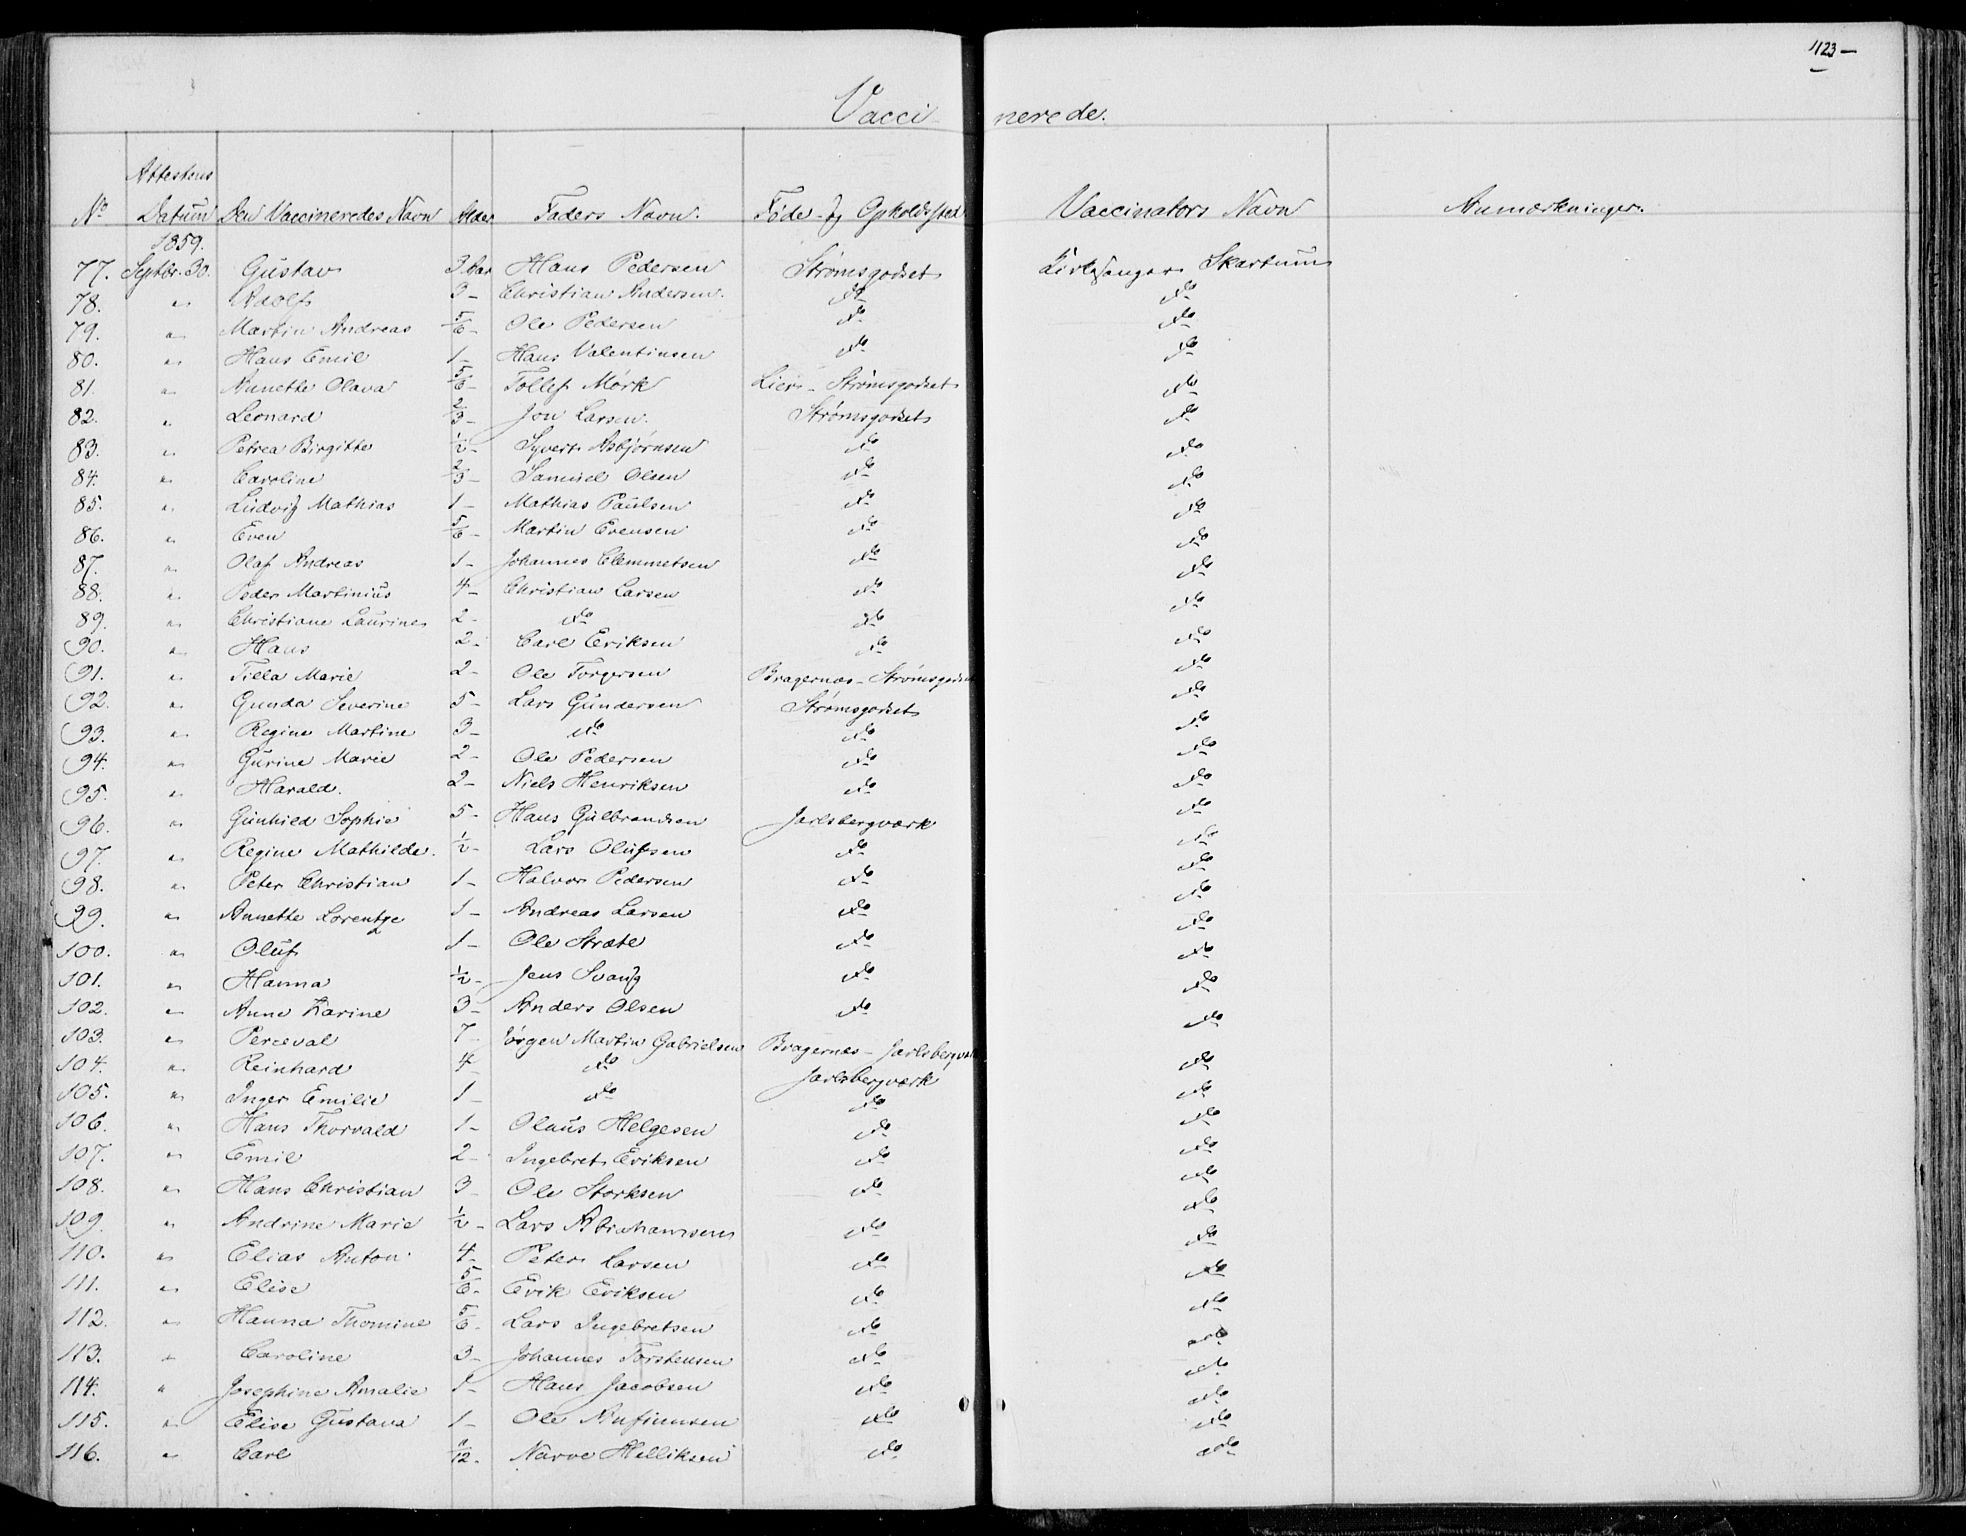 123 —
Vaccinerede.
No Attestens Datum Den Vaccineredes Navn Alder Faders Navn. Føde- og Opholdssted Vaccinators Navn Anmærkninger.
1859.
77. Septbr. 30. Gustav 3 Aar Hans Pedersen Strømsgodset Kirkesanger Skartum
78. " Adolf 3 - Christian Andersen. do do
79. " Martin Andreas 5/6 - Ole Pedersen do do
80. " Hans Emil 1 - Hans Valentinsen do do
81. " Annette Olava 5/6 - Tollef Mørk Lier - Strømsgodset do
82. " Leonard 2/3 - Jon Larsen. Strømsgodset do
83. " Petrea Birgitte 1/2 - Syvert Asbjørnsen do do
84. " Caroline 2/3 - Samuel Olsen do do
85. " Ludvig Mathias 1 - Mathias Paulsen do do
86. " Even 5/6 - Martin Evensen do do
87. " Olaf Andreas 1 - Johannes Clemmetsen do do
88. " Peder Martinius 4 - Christian Larsen do do
89. " Christiane Laurine 2 - do do do
90. " Hans 2 - Carl Eriksen do do
91. " Tilla Marie 2 - Ole Torgersen Bragernæs - Strømsgodset do
92. " Gunda Severine 5 - Lars Gundersen Strømsgodset do
93. " Regine Martine 3 - do do do
94. " Gurine Marie 2 - Ole Pedersen do do
95. " Harald. 2 - Niels Henriksen do do
96. " Gunhild Sophie 5 - Hans Gulbrandsen Jarlsbergværk do
97. " Regine Mathilde. 1/2 - Lars Olufsen do do
98. " Peter Christian 1 - Halvor Pedersen do do
99. " Annette Lorentze 1 - Andreas Larsen do do
100. " Oluf 1 - Ole Stræte do do
101. " Hanna 1/2 - Jens Svang do do
102. " Anne Karine 3 - Anders Olsen do do
103. " Perceval 7 - Jørgen Martin Gabrielsen Bragernæs - Jarlsbergværk do
104. " Reinhard 4 do Jarlsbergværk do
105. " Inger Emilie 1 - do do do
106. " Hans Thorvald 1 - Olaus Helgesen do do
107. " Emil 2 - Ingebret Eriksen do do
108. " Hans Christian 3 - Ole Storksen do do
109. " Andrine Marie 1/2 - Lars Abrahamsen do do
110. " Elias Anton 4 - Peter Larsen do do
111. " Elise 5/6 - Erik Eriksen do do
112. " Hanna Thomine 5/6 - Lars Ingebretsen do do
113. " Caroline 3 - Johannes Torstensen do do
114. " Josephine Amalie 1 - Hans Jacobsen do do
115. " Elise Gustava 1 - Ole Anfinnsen do do
116. " Carl 11/12 - Narve Helliksen do do